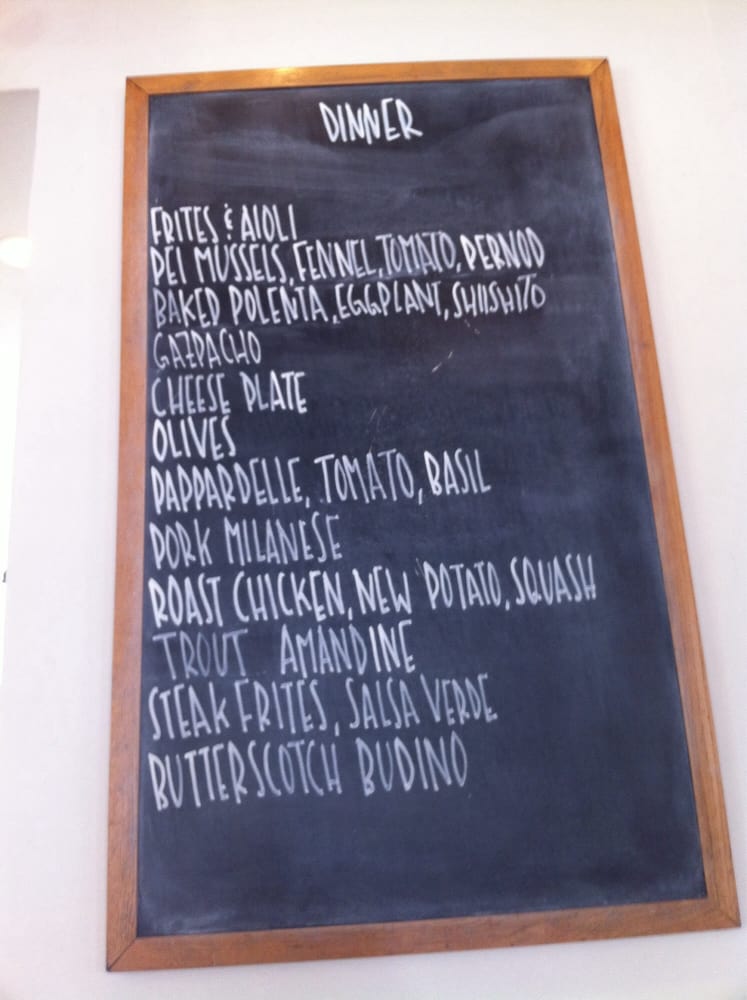 DINNER
FRITES & AIOLI
PEI MUSSELS, FENNEL, TOMATO, PERNOD
BAKED POLENTA, EGGPLANT, SHIISHITO
GAZPACHO
CHEESE PLATE
OLIVES
PAPPARDELLE, TOMATO, BASIL
PORK MILANESE
ROAST CHICKEN, NEW POTATO, SQUASH
TROUT AMANDINE
STEAK FRITES, SALSA VERDE
BUTTERSCOTCH BUDINO